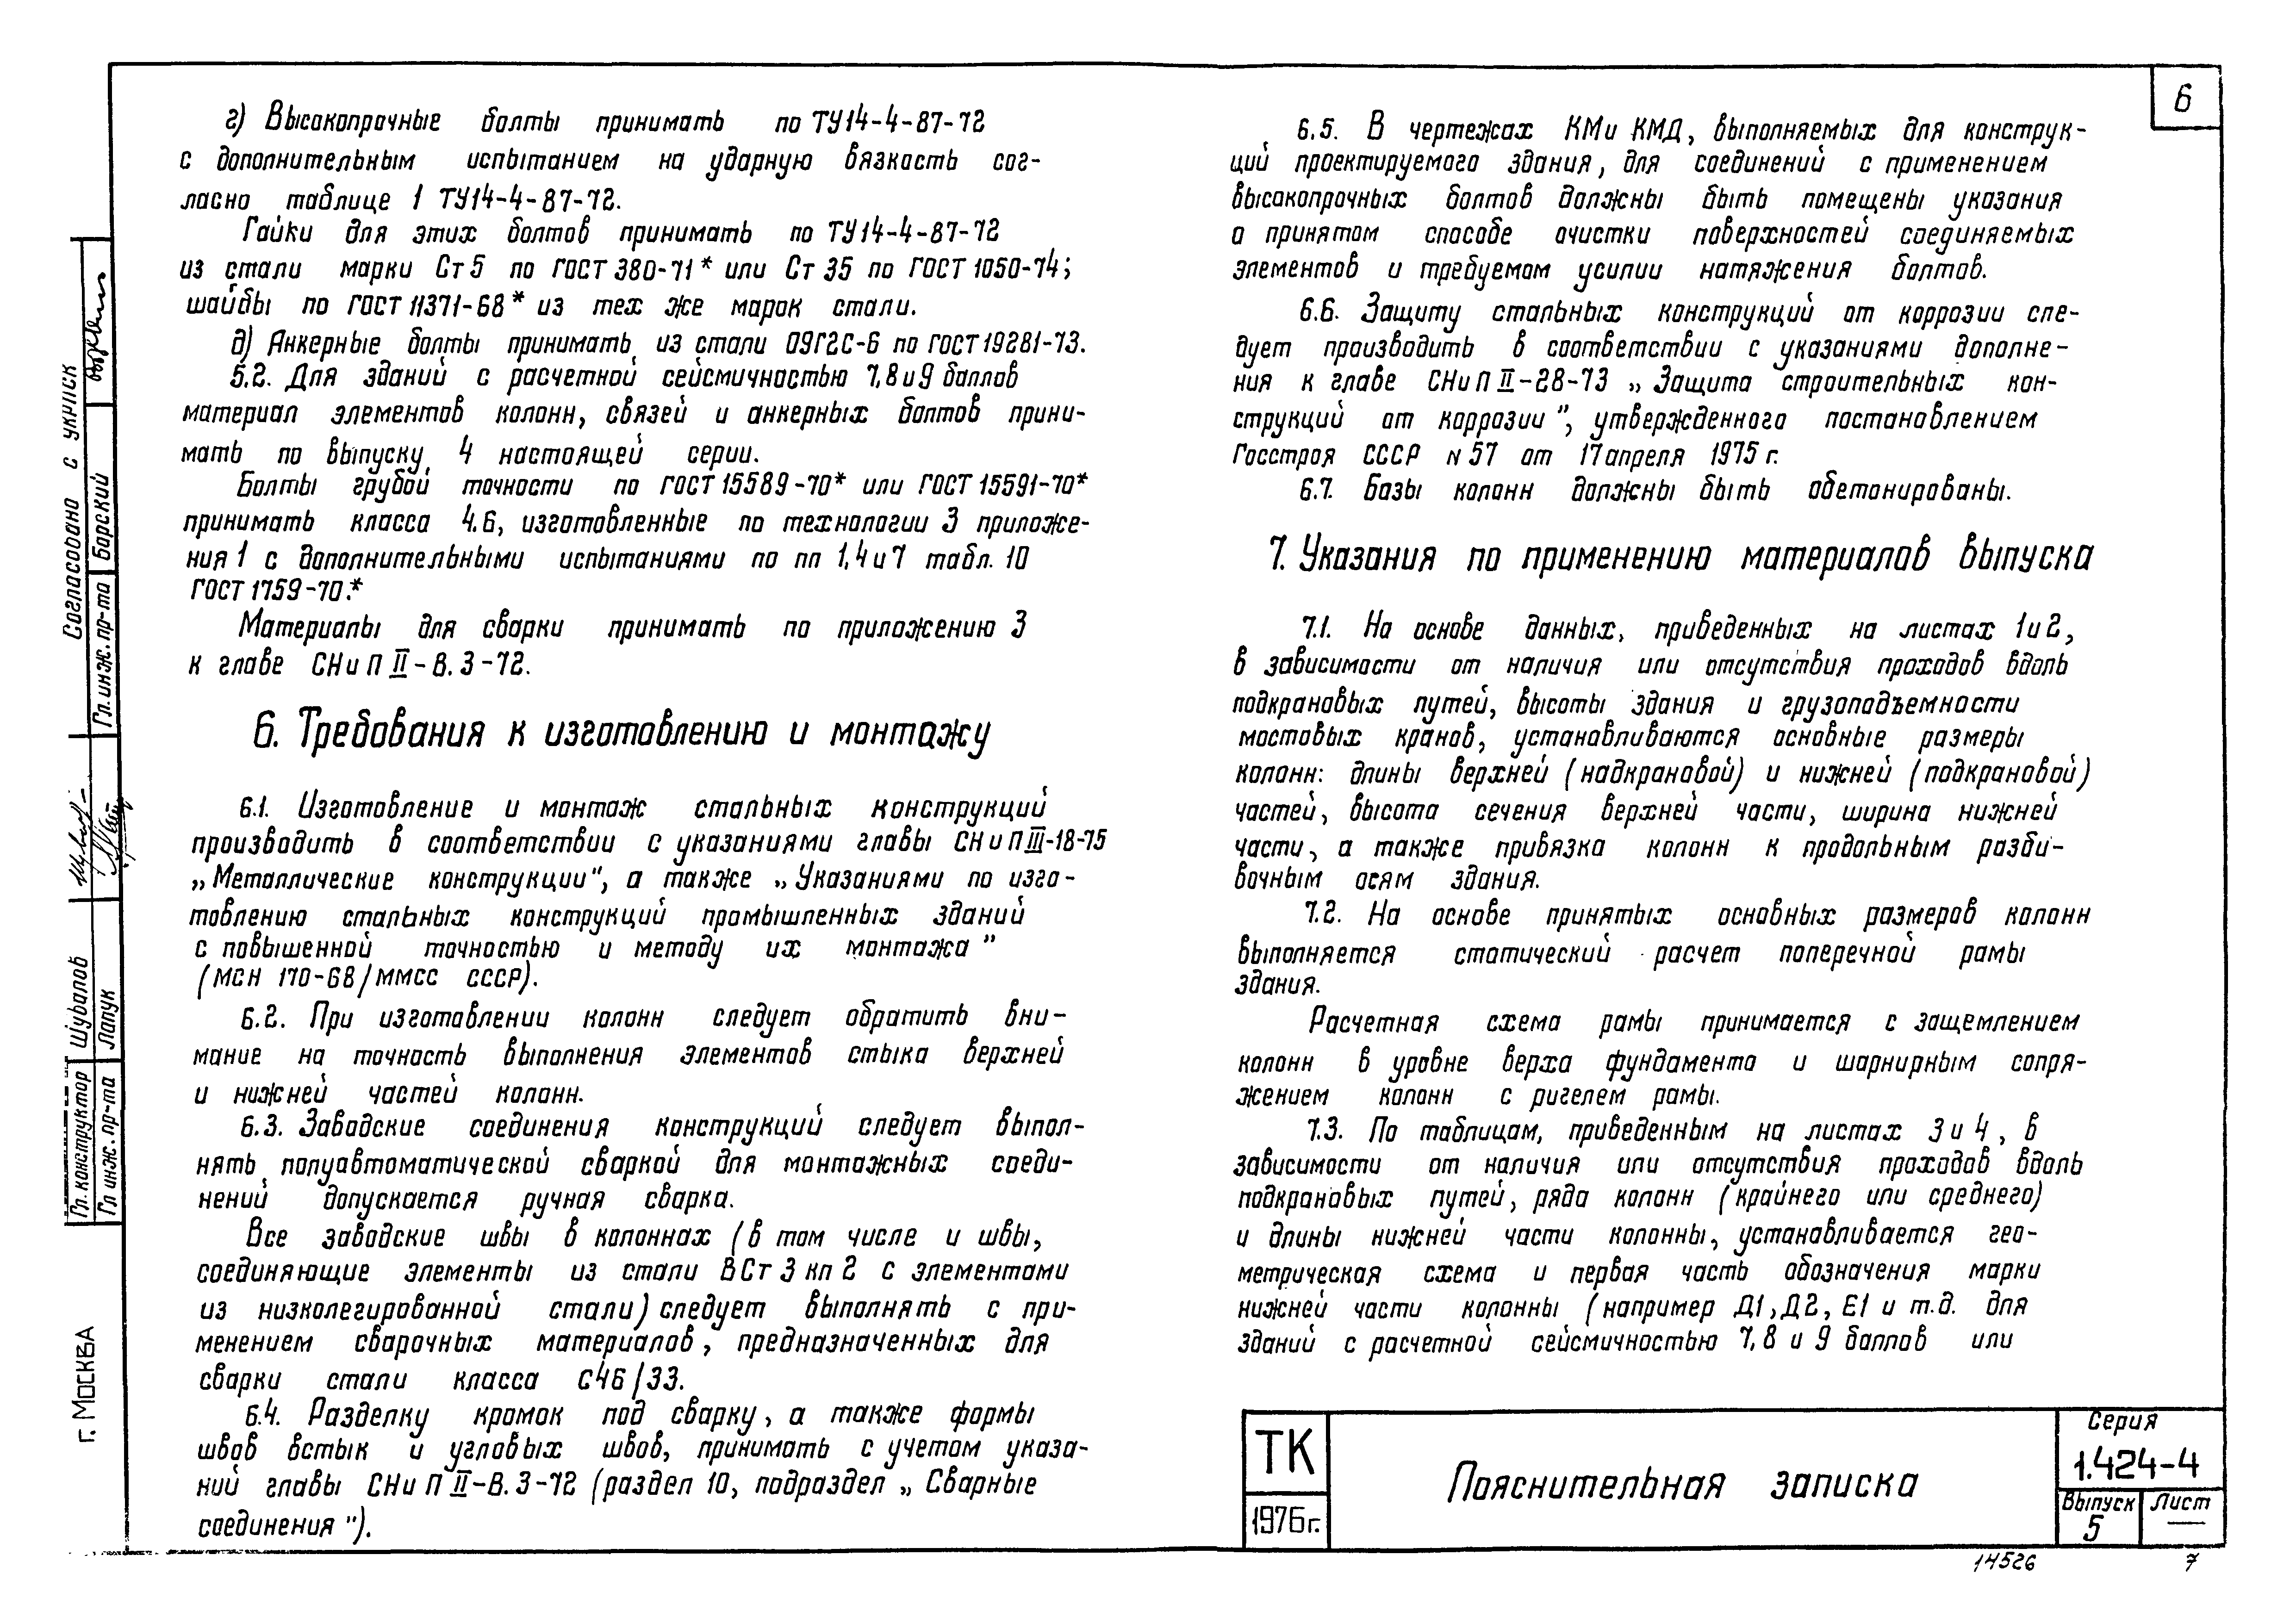 6
г) Высокопрочные болты принимать по ТУ14-4-87-72
с дополнительным испытанием на ударную вязкость сог-
ласно таблице 1 ТУ14-4-87-72.
Гайки для этих болтов принимать по ТУ14-4-87-72
из стали марки Ст5 по ГОСТ 380-71* или Ст 35 по ГОСТ 1050-74;
шайбы по ГОСТ 11371-68* из тех же марок стали.
д) Анкерные болты принимать из стали 09Г2С-6 по ГОСТ 19281-73.
5.2. Для зданий с расчетной сейсмичностью 7,8 и 9 баллов
материал элементов колонн, связей и анкерных болтов прини-
мать по выпуску 4 настоящей серии.
Болты грубой точности по ГОСТ 15589-70* или ГОСТ 15591-70*
принимать класса 4.6, изготовленные по технологии 3 приложе-
ния 1 с дополнительными испытаниями по пп 1,4 и 7 табл. 10
ГОСТ 1759-70.*
Материалы для сварки принимать по приложению 3
к главе СНиП II-В.3-72.
6. Требования к изготовлению и монтажу
6.1. Изготовление и монтаж стальных конструкций
производить в соответствии с указаниями главы СНиП III-18-75
„Металлические конструкции", а также „Указаниями по изго-
товлению стальных конструкций промышленных зданий
с повышенной точностью и методу их монтажа"
(МСН 170-68/ММСС СССР).
6.2. При изготовлении колонн следует обратить вни-
мание на точность выполнения элементов стыка верхней
и нижней частей колонн.
6.3. Заводские соединения конструкций следует выпол-
нять полуавтоматической сваркой для монтажных соеди-
нений допускается ручная сварка.
Все заводские швы в колоннах (в том числе и швы,
соединяющие элементы из стали ВСт 3 кп 2 с элементами
из низколегированной стали) следует выполнять с при-
менением сварочных материалов, предназначенных для
сварки стали класса С46/33.
6.4. Разделку кромок под сварку, а также формы
швов встык и угловых швов, принимать с учетом указа-
ний главы СНиП II-В.3-72 (раздел 10, подраздел „Сварные
соединения").
6.5. В чертежах КМ и КМД, выполняемых для конструк-
ций проектируемого здания, для соединений с применением
высокопрочных болтов должны быть помещены указания
о принятом способе очистки поверхностей соединяемых
элементов и требуемом усилии натяжения болтов.
6.6. Защиту стальных конструкций от коррозии сле-
дует производить в соответствии с указаниями дополне-
ния к главе СНиП II-28-73 „Защита строительных кон-
струкций от коррозии", утвержденного постановлением
Госстроя СССР N 57 от 17 апреля 1975 г.
6.7. Базы колонн должны быть обетонированы.
7. Указания по применению материалов выпуска
7.1. На основе данных, приведенных на листах 1 и 2,
в зависимости от наличия или отсутствия проходов вдоль
подкрановых путей, высоты здания и грузоподъемности
мостовых кранов, устанавливаются основные размеры
колонн: длины верхней (надкрановой) и нижней (подкрановой)
частей, высота сечения верхней части, ширина нижней
части, а также привязка колонн к продольным разби-
вочным осям здания.
7.2. На основе принятых основных размеров колонн
выполняется статический расчет поперечной рамы
здания.
Расчетная схема рамы принимается с защемлением
колонн в уровне верха фундамента и шарнирным сопря-
жением колонн с ригелем рамы.
7.3. По таблицам, приведенным на листах 3 и 4, в
зависимости от наличия или отсутствия проходов вдоль
подкрановых путей, ряда колонн (крайнего или среднего)
и длины нижней части колонны, устанавливается гео-
метрическая схема и первая часть обозначения марки
нижней части колонны (например Д1, Д2, Е1 и т.д. для
зданий с расчетной сейсмичностью 7,8 и 9 баллов или
Согласовано с УКРПСК
Гл. инж. пр-та Барский
Гл. конструктор Шувалов
Гл инж. пр-та Лапук
г. Москва
ТК
1976г.
Пояснительная записка
Серия
1.424-4
Выпуск
5
Лист
—
14526
7